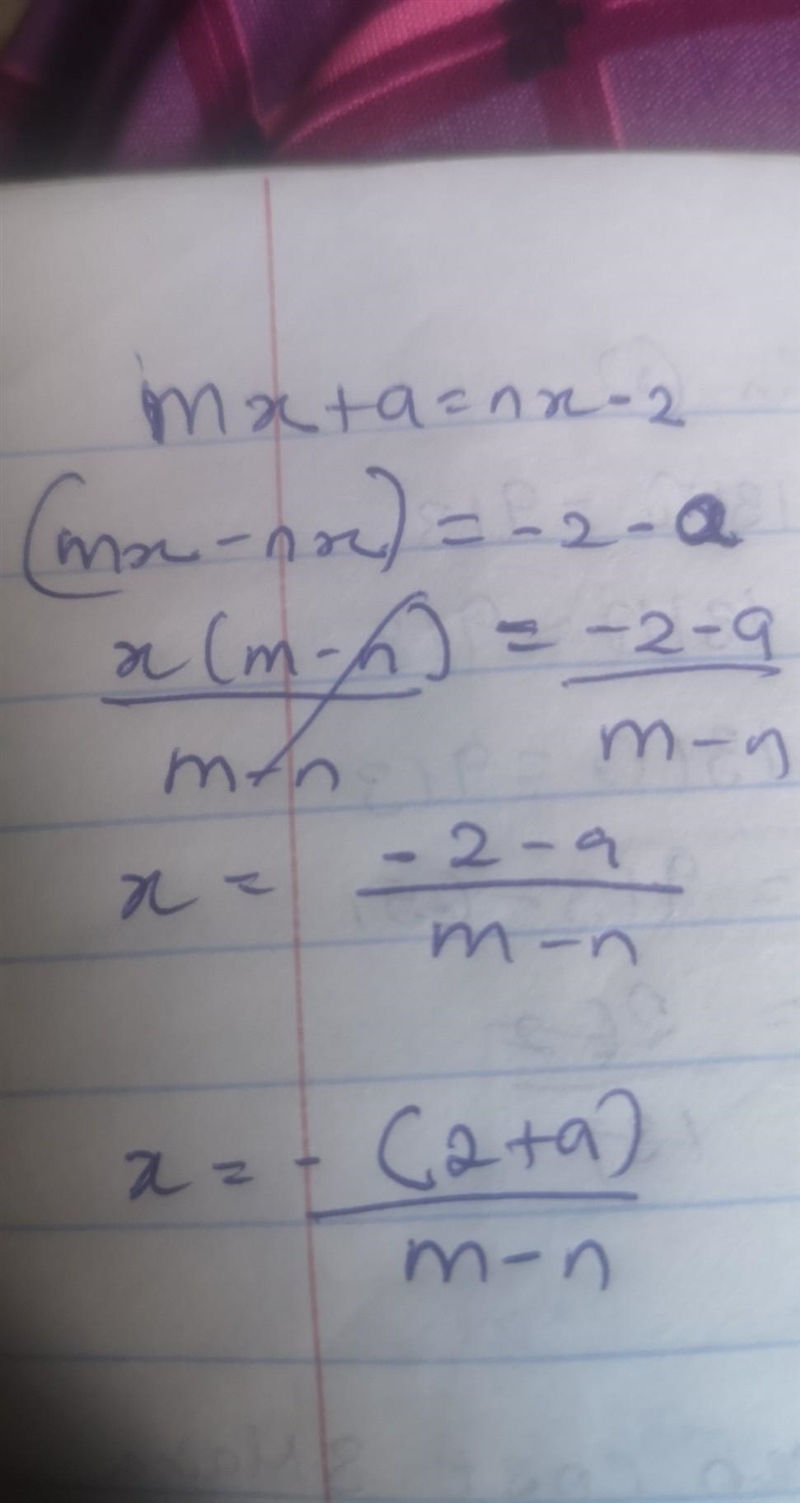 mx + a = nx - 2
(mx - nx) = -2 - a
x(m - n) = -2 - a
m - n m - n
x = -2 - a
m - n
x = -(2 + a)
m - n